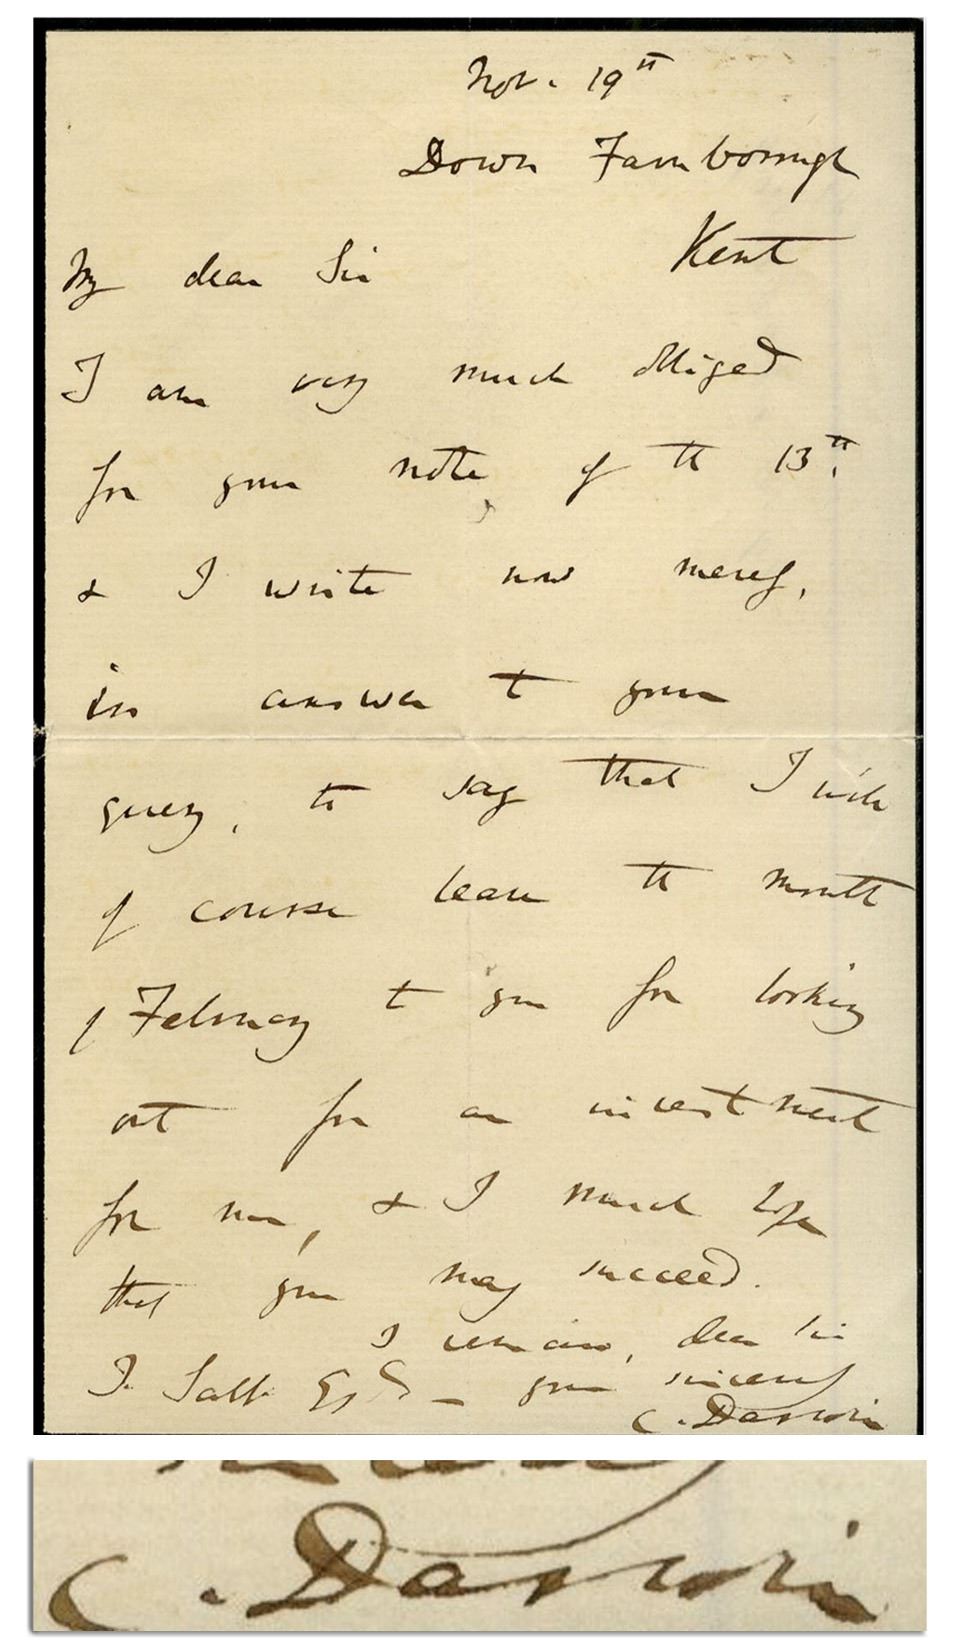 Nov. 19th
Down Farnborough
Kent
My dear Sir
I am very much obliged
for your note, of the 13th.
& I write now merely,
in answer to your
query, to say that I wish
of course leave the month
of February to you for looking
out for an investment
for me, & I much hope
that you may succeed.
I remain, dear Sir
J. Salt Esq – your sincerely
C. Darwin
C. Darwin